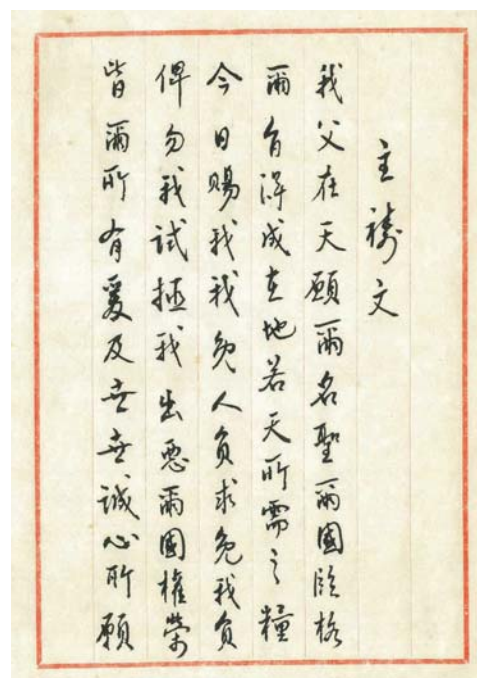 主禱文
我父在天願爾名聖爾國臨格
爾旨得成在地若天所需之糧
今日賜我我免人負求免我負
俾勿我試拯我出惡爾國權榮
皆爾所有爰及世世誠心所願